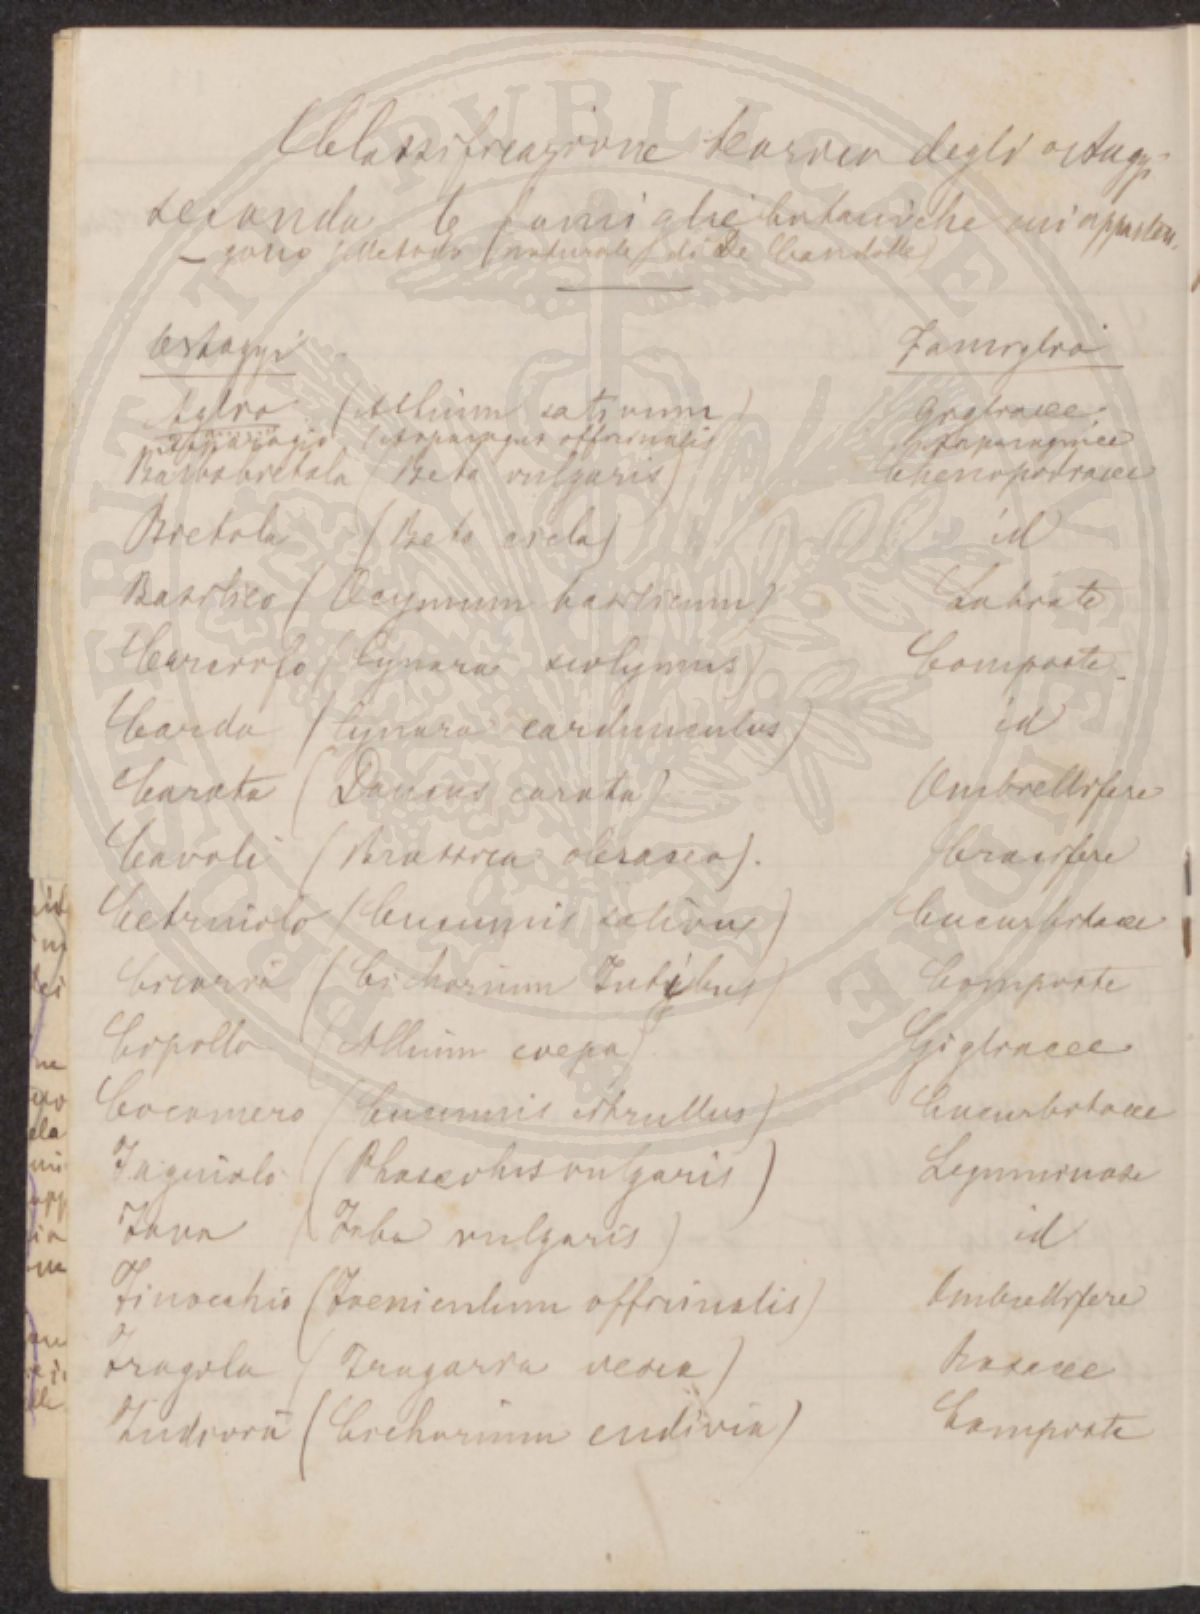 Classificazione teorica degli ortaggi
secondo le famiglie botaniche cui apparten-
gono (Metodo naturale di De Candolle)
Ortaggi Famiglia
Aglio (Allium sativum) Gigliacee
Asparagio (Asparagus officinalis Asparaginee
Barbabietola (Beta vulgaris) Chenopodiacee
Bietola (Beta cicla) id
Basilico (Ocymum basilicum) Labiate
Carciofo (Cynara scolymus) Composte
Cardo (Cynara cardunculus) id
Carota (Daucus carota) Ombrellifere
Cavoli (Brassica oleracea). Crucifere
Cetriuolo (Cucumis sativus) Cucurbitacee
Cicoria (Cichorium Intibus) Composte
Cipolla (Allium coepa) Gigliacee
Cocomero (Cucumis citrullus) Cucurbitacee
Fagiuolo (Phaseolus vulgaris) Leguminose
Fava (Faba vulgaris) id
Finocchio (Foeniculum officinalis) Ombrellifere
Fragola (Fragaria vesca) Rosacee
Indivia (Cichorium endivia) Composte